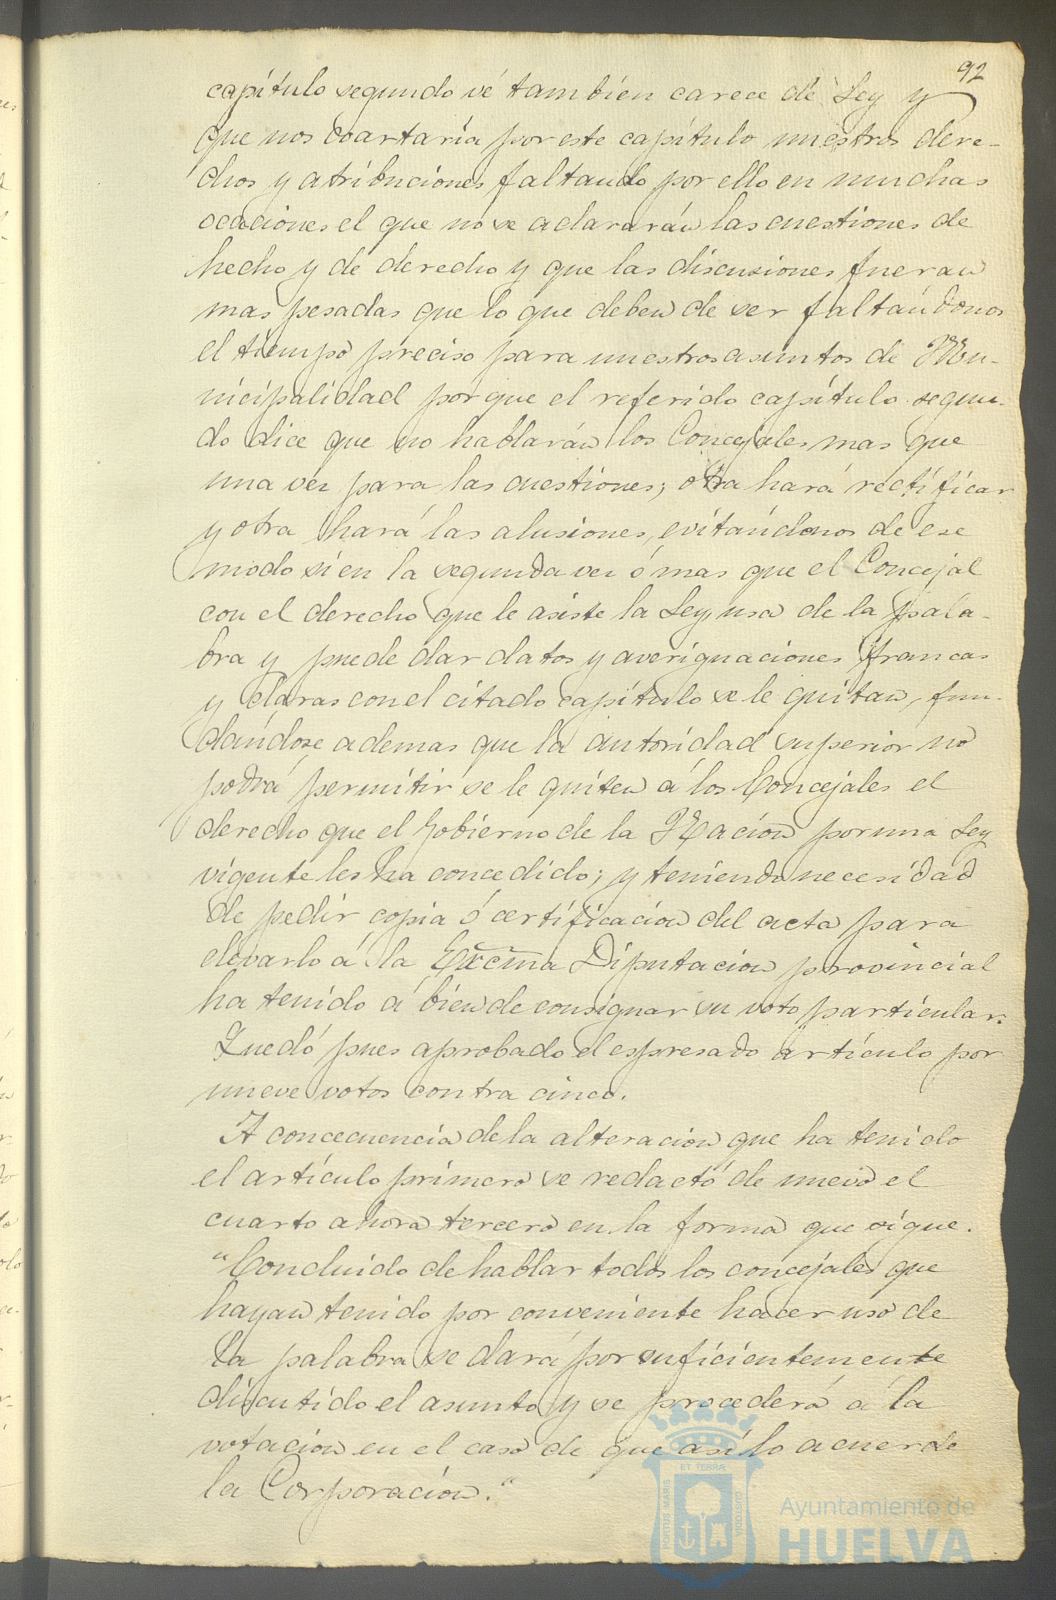 92
capítulo segundo sé tambien carece de Ley y
que nos coartaría por este capítulo nuestros dere-
chos y atribuciones faltando por ello en muchas
ocaciones el que no se aclararán las cuestiones de
hecho y de derecho y que las discusiones fueran
mas pesadas que lo que deben de ser faltándonos
el tiempo preciso para nuestros asuntos de Mu-
nicipalidad porque el referido capítulo segun-
do dice que no hablarán los Concejales mas que
una vez para las cuestiones; otra hará rectificar
y otra hará las alusiones, evitándonos de ese
modo si en la segunda vez ó mas que el Concejal
con el derecho que le asiste la Ley, usa de la pala-
bra y puede dar datos y averiguaciones francas
y claras con el citado capítulo se le quitan, fun-
dándose ademas que la autoridad superior no
podrá permitir se le quiten á los Concejales el
derecho que el Gobierno de la Nación por una Ley
vigente les ha concedido; y teniendo necesidad
de pedir copia ó certificacion del acta para
elevarlo á la Excma Diputacion provincial
ha tenido á bien de consignar su voto particular.
Quedó pues aprobado el espresado artículo por
nueve votos contra cinco.
A concecuencia de la alteracion que ha tenido
el artículo primero se redactó de nuevo el
cuarto ahora tercero en la forma que sigue.
"Concluido de hablar todos los concejales que
hayan tenido por conveniente hacer uso de
la palabra se dará por suficientemente
discutido el asunto y se procederá á la
votacion en el caso de que así lo acuerde
la Corporación."
ET TERRÆ
PORTUS MARIS
CUSTODIA
Ayuntamiento de
HUELVA